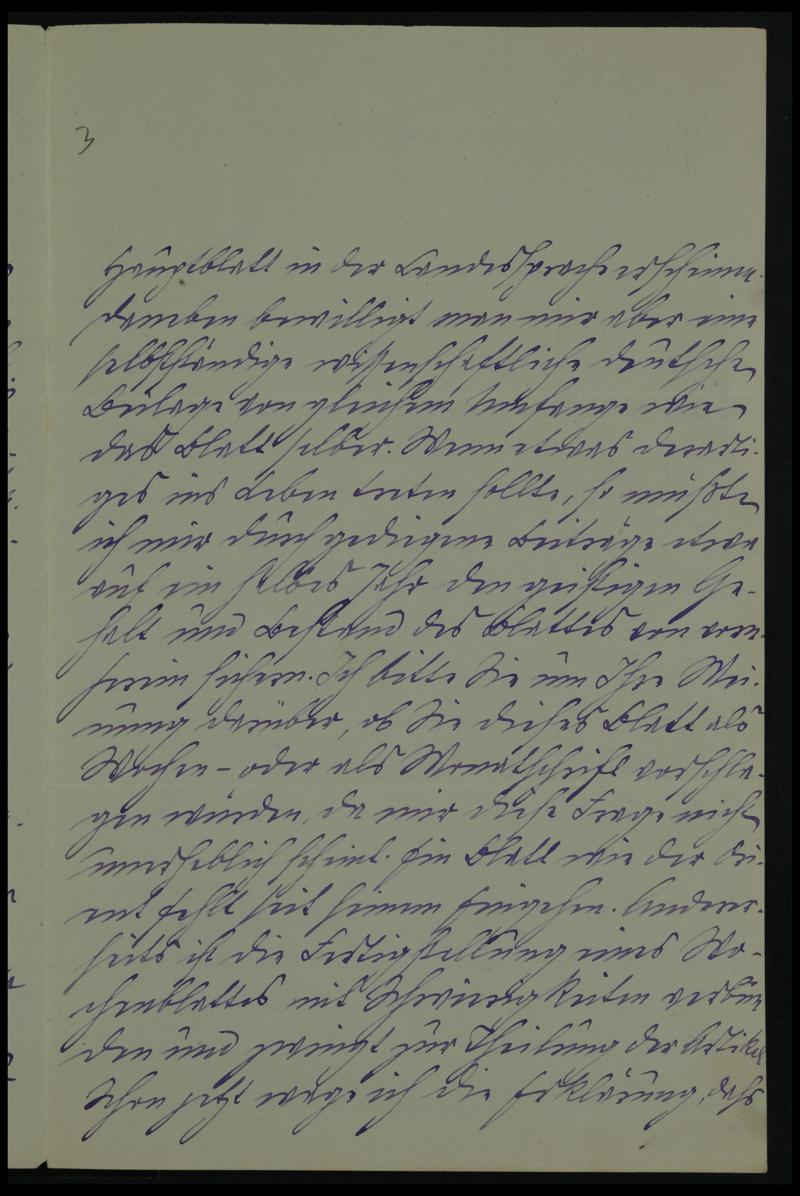 3
Hauptblatt in der Landessprache erscheinen.
Daneben bewilligt man mir aber eine
selbstständige wissenschaftliche deutsche
Beilage von gleichem Umfange wie
das Blatt selber. Wenn etwas derarti-
ges ins Leben treten sollte, so müßte
ich mir durch gediegene Beiträge etwa
auf ein halbes Jahr den geistigen Ge-
halt und Bestand des Blattes von vorn-
herein sichern. Ich bitte Sie um Ihre Mei-
nung darüber, ob Sie dieses Blatt als
Wochen- oder als Monatschrift vorschla-
gen würden, da mir diese Frage nicht
unerheblich scheint. Ein Blatt wie der Ori-
ent fehlt seit seinem Eingehen. Anderer-
seits ist die Fertigstellung eines Wo-
chenblattes mit Schwierigkeiten verbun
den und zwingt zur Theilung der Artikel
Schon jetzt wage ich die Erklärung, dass